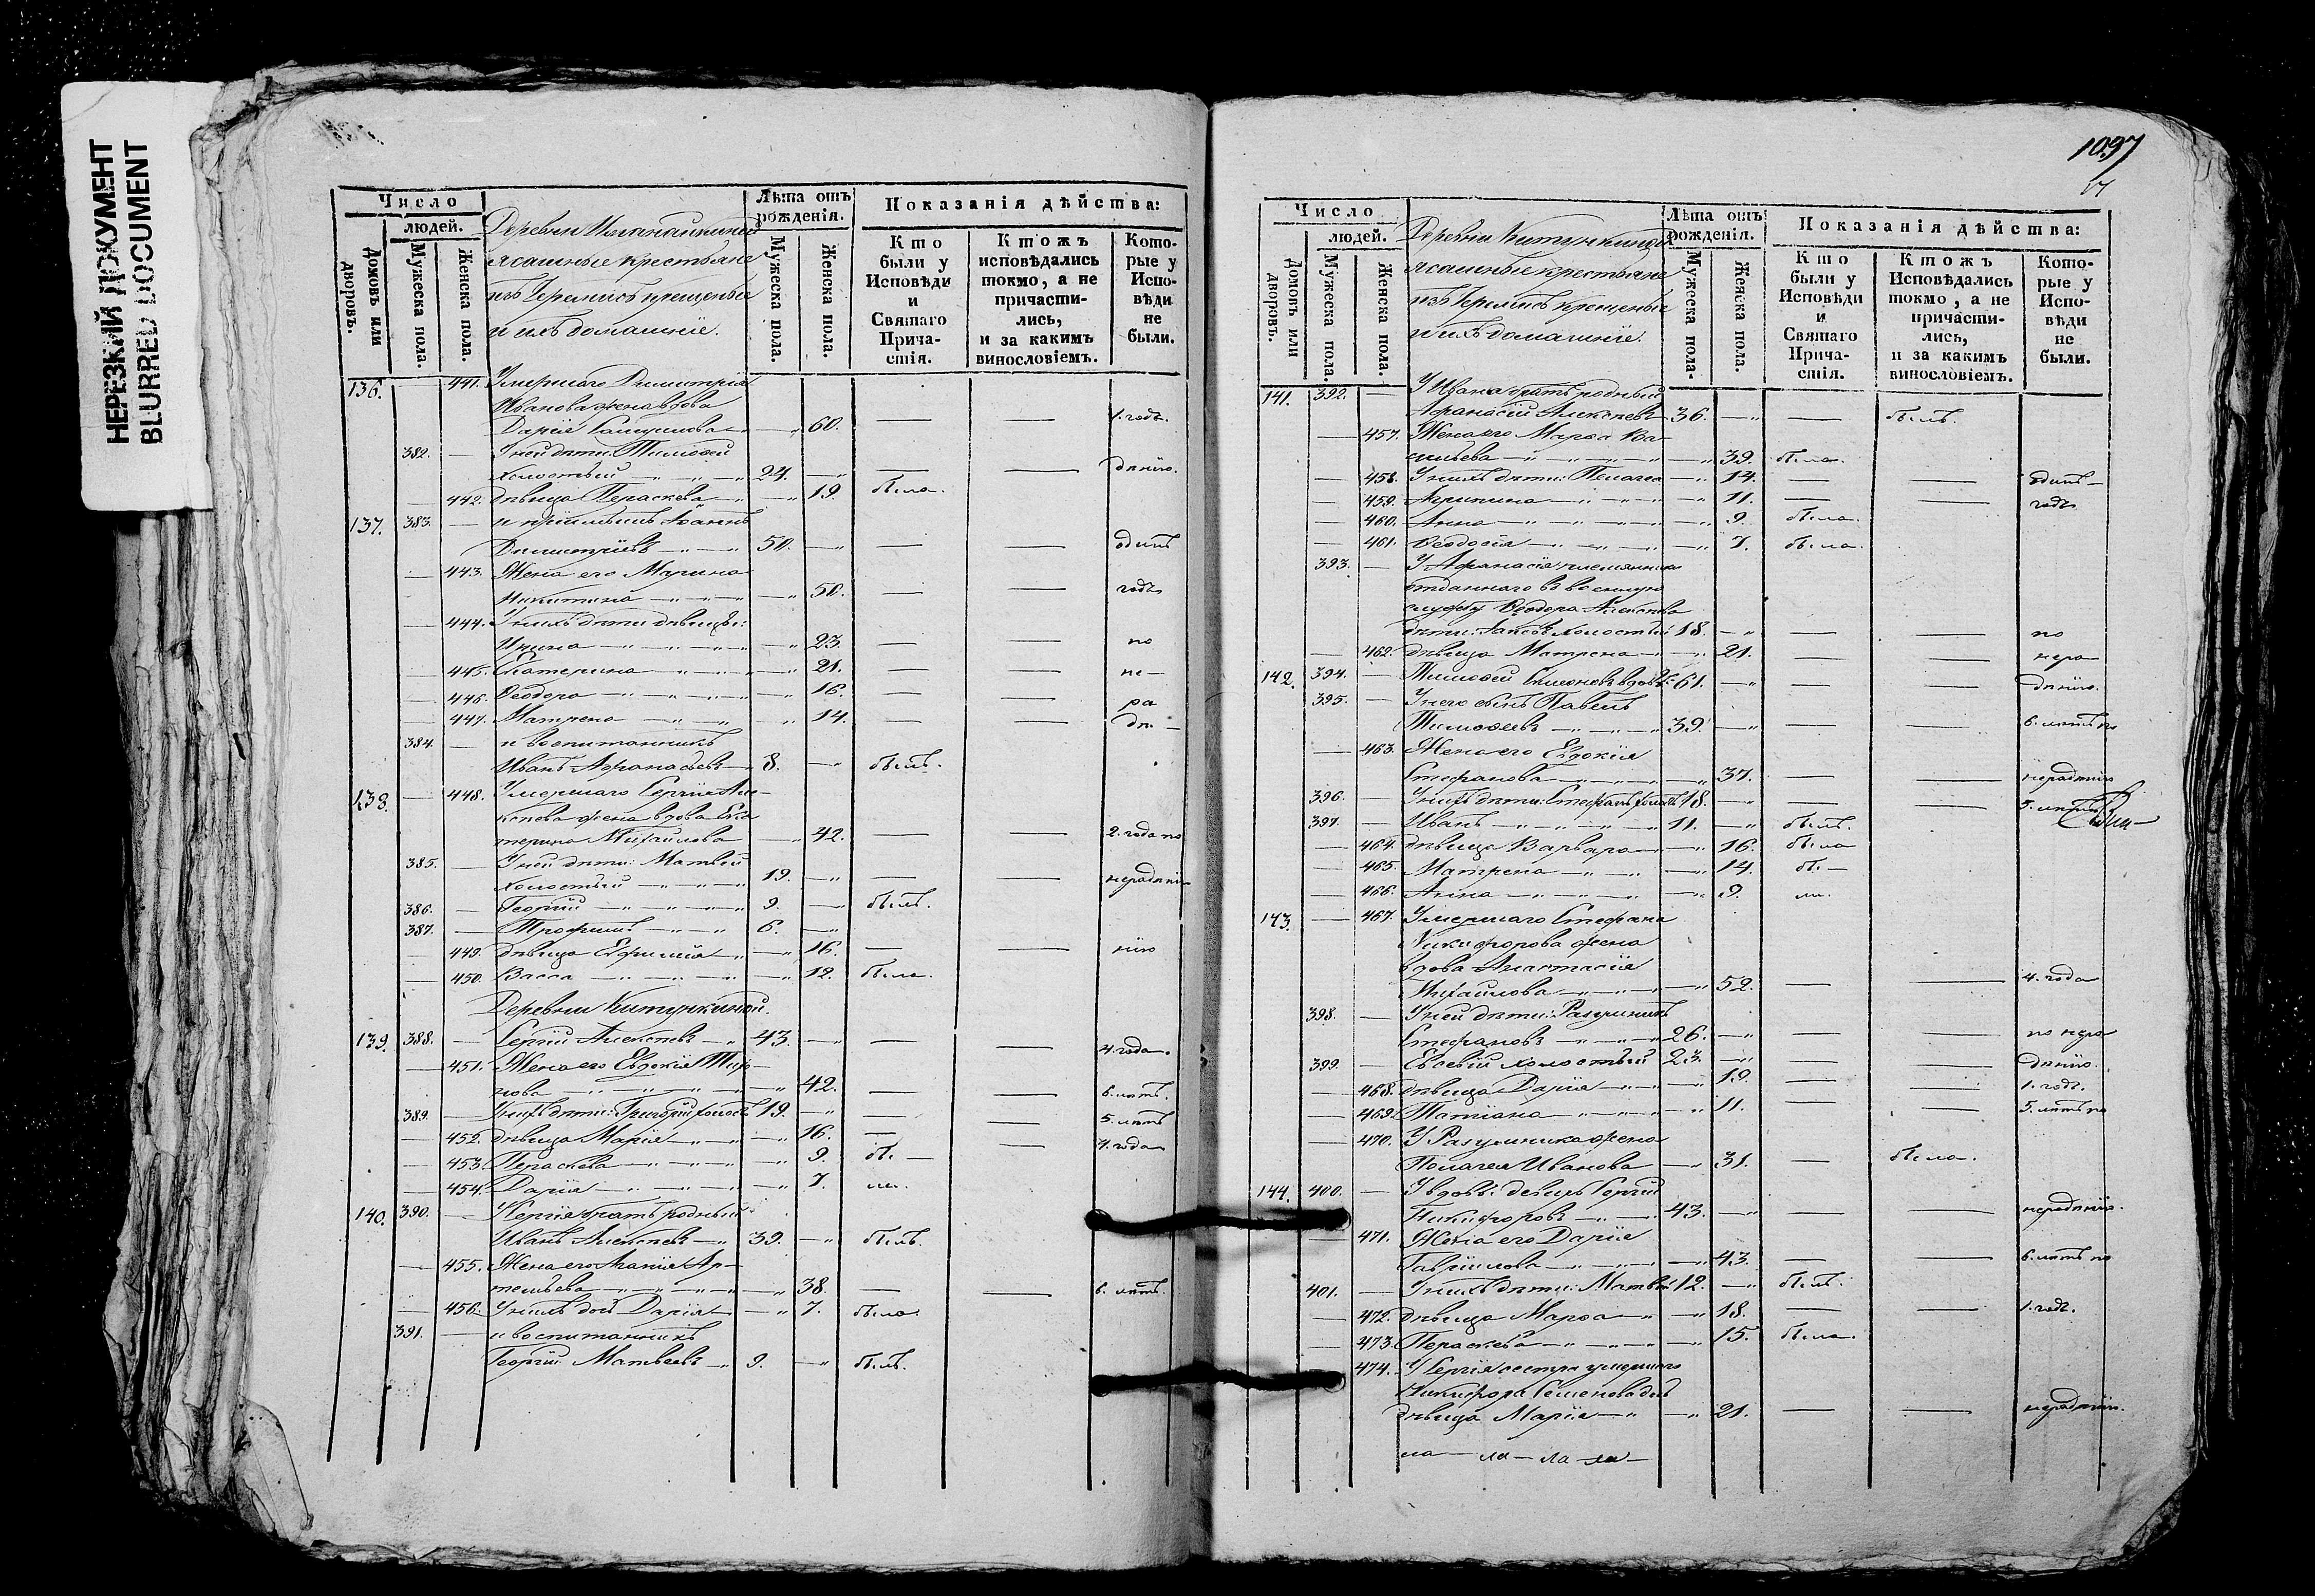 НЕРЕЗКИЙ ДОКУМЕНТ
BLURRED DOCUMENT
Число
людей.
Домовъ или дворовъ.
Мужеска пола.
Женска пола.
Деревни
ясашные крестьяне
изъ Черемисъ крещеные
и ихъ домашніе.
Лѣта отъ рожденія.
Мужеска пола.
Женска пола.
Показанія дѣйства:
Кто были у Исповѣди и Святаго Причастія.
Ктожъ исповѣдались токмо, а не причастились, и за какимъ винословіемъ.
Которые у Исповѣди не были.
136. — 441. Умершаго Димитрія
Иванова жена вдова
Дарія — 60. — — 1. годъ.
382. — У ней дѣти: Тимофей
Холостый — 24. — — — дѣнію.
— 442. дѣвица Параскева — 19. была.
137. 383. — и пріимышъ Іоаннъ
Димитріевъ — 50. — — — одинъ
— 443. Жена его Марина
Никитина — 50. — — годъ
— 444. У нихъ дѣти дѣвицы:
Ирина — 23. — — по
— 445. Екатерина — 21. — — не —
— 446. Феодора — 16. — — ра
— 447. Матрена — 14. — — дѣ. —
384. — и воспитанникъ
Иванъ Афанасьевъ — 8. — былъ.
138. — 448. Умершаго Сергія Але-
ксѣева жена вдова Ека
терина Михайлова — 42. — — 2. года по
385. — У ней дѣти: Матвей
Холостый — 19. — — — нерадѣнію
386. — Георгій — 9. — былъ.
387. — Трофимъ — 6. —
— 449. дѣвица Ефимия — 16. — — нію
— 450. Васса — 12. была.
Деревни Китункиной.
139. 388. — Сергій Алексѣевъ — 43. — — — 4. года.
— 451. Жена его Евдокія
нова — 42. — — 6. лѣтъ.
389. — У нихъ дѣти: Григорій холостъ 19. — — — 5. лѣтъ
— 452. дѣвица Марія — 16. — — 4. года
— 453. Параскева — 9. бы —
— 454. Дарія — 7. ли.
140. 390. — У Сергія братъ родный
Иванъ Алексѣевъ — 39. — былъ.
— 455. Жена его Агапія Ар-
темьева — 38. — — 6. лѣтъ.
— 456. У нихъ дочь Дарія — 7. была.
391. — и воспитанникъ
Георгій Матвеевъ — 9. — былъ.
1097
Число
людей.
Домовъ или дворовъ.
Мужеска пола.
Женска пола.
Деревни Китункиной
ясашные крестьяне
изъ Черемисъ крещеные
и ихъ домашніе.
Лѣта отъ рожденія.
Мужеска пола.
Женска пола.
Показанія дѣйства:
Кто были у Исповѣди и Святаго Причастія.
Ктожъ Исповѣдались токмо, а не причастились, и за какимъ винословіемъ.
Которые у Исповѣди не были.
141. 392. — У Ивана братъ родный
Афанасій Алексѣевъ — 36. — — былъ.
— 457. Жена его Марфа Ва-
сильева — 39. была.
— 458. У нихъ дѣти: Пелагея — 14. — — одинъ —
— 459. Агрипина — 11. — — годъ
— 460. Анна — 9. была.
— 461. Феодосія — 7. была.
393. — У Афанасія племянника
отданнаго въ военную
службу Феодора Алексѣева
дѣти: Іаковъ холостый 18. — — — по
— 462. дѣвица Матрена — 21. — — нера
142. 394. — Тимофей Симеоновъ вдовъ 61. — — — дѣнію.
395. — У него сынъ Павелъ
Тимофеевъ — 39. — — — 6. лѣтъ по
— 463. Жена его Евдокія
Стефанова — 37. — — нерадѣнію
396. — У нихъ дѣти: Стефанъ холостъ 18. — — — 5. лѣтъ
397. — Иванъ — 11. — былъ.
— 464. дѣвица Варвара — 16. была
— 465. Матрена — 14. бы —
— 466. Анна — 9. ли.
143. — 467. Умершаго Стефана
Никифорова жена
вдова Анастасія
Михайлова — 52. — — 4. года
398. — У ней дѣти: Разумникъ
Стефановъ — 26. — — — по нера
399. — Евсевій холостый 23. — — — дѣнію.
— 468. дѣвица Дарія — 19. — — 1. годъ.
— 469. Татіана — 11. — — 5. лѣтъ по
— 470. У Разумника жена
Пелагея Иванова — 31. — была.
144. 400. — У вдовы деверь Сергій
Никифоровъ — 43. — — — нерадѣнію.
— 471. Жена его Дарія
Гавріилова — 43. — — 6. лѣтъ по
401. — У нихъ дѣти: Матвей 12. — былъ.
— 472. дѣвица Марфа — 18. — — 1. годъ.
— 473. Параскева — 15. была.
— 474. У Сергія сестра умершаго
Никифора Семенова дочь
дѣвица Марія — 21. — — нерадѣнію.